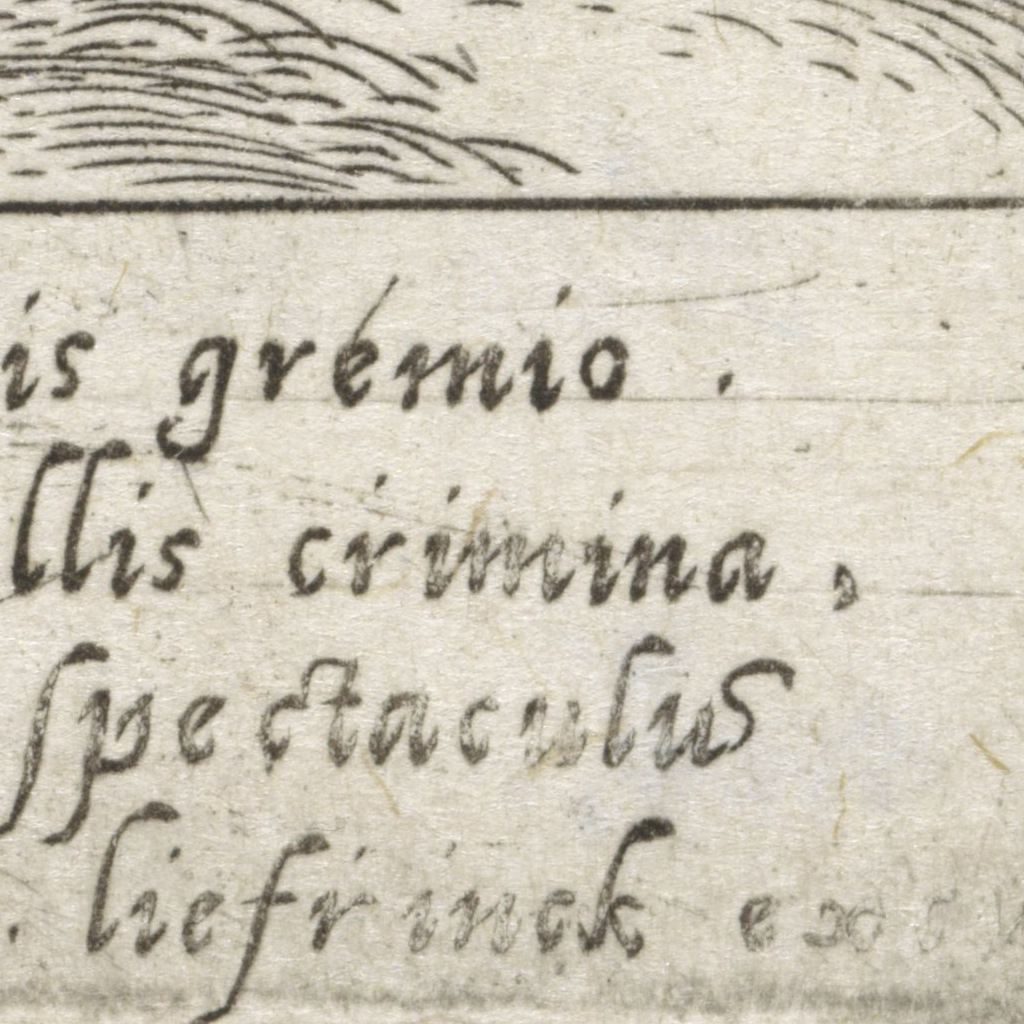 is gremio .
llis crimina ,
ſpectaculus
. liefrinck exc